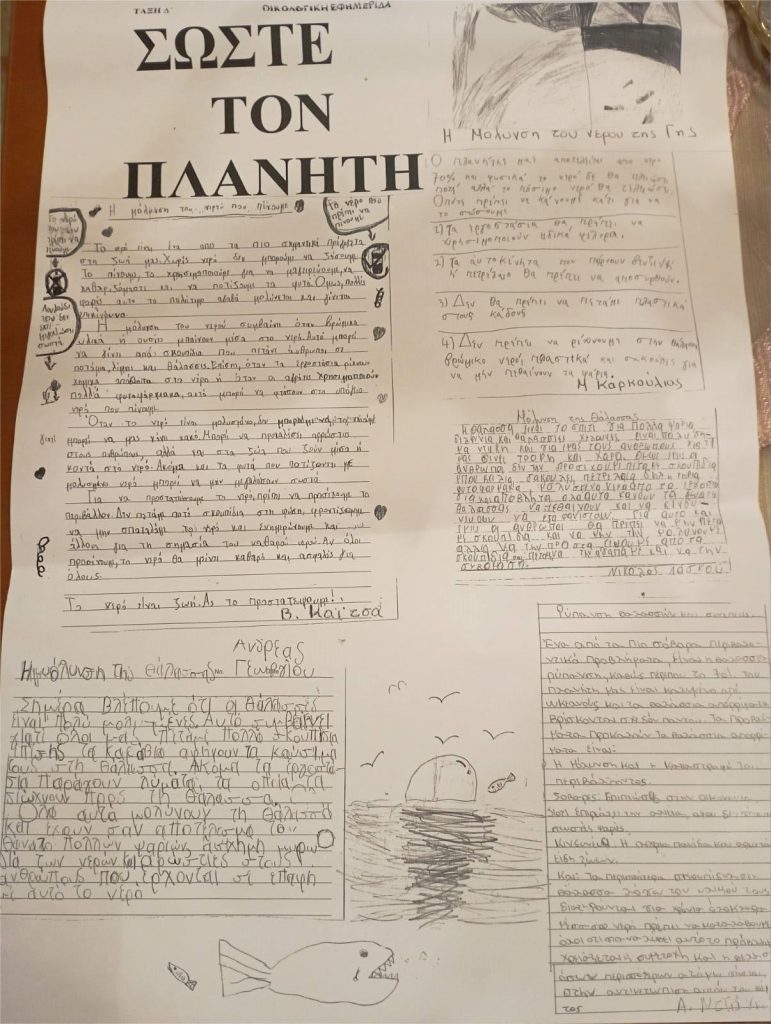 ΤΑΞΗ Δ΄
ΟΙΚΟΛΟΓΙΚΗ ΕΦΗΜΕΡΙΔΑ
ΣΩΣΤΕ
ΤΟΝ
ΠΛΑΝΗΤΗ
Η μόλυνση του νερού που πίνουμε
Το νερό που
πρέπει να
πίνουμε
Το νερό είναι ένα από τα πιο σημαντικά πράγματα
στη ζωή μας. Χωρίς νερό δεν μπορούμε να ζήσουμε.
Το πίνουμε, το χρησιμοποιούμε για να μαγειρεύουμε, να
καθαριζόμαστε και να ποτίζουμε τα φυτά. Όμως, πολλές
φορές αυτό το πολύτιμο αγαθό μολύνεται και γίνεται
επικίνδυνο.
Η μόλυνση του νερού συμβαίνει όταν βρώμικα
υλικά ή ουσίες μπαίνουν μέσα στο νερό. Αυτό μπορεί
να γίνει από: σκουπίδια που πετάνε άνθρωποι σε
ποτάμια, λίμνες και θάλασσες. Επίσης, όταν τα εργοστάσια ρίχνουν
χημικά απόβλητα στο νερό ή όταν οι αγρότες χρησιμοποιούν
πολλά φυτοφάρμακα, αυτά μπορεί να φτάσουν στο υπόγειο
νερό που πίνουμε.
Όταν το νερό είναι μολυσμένο, δεν μπορούμε να το πιούμε
γιατί μπορεί να μας κάνει κακό. Μπορεί να προκαλέσει αρρώστια
στους ανθρώπους, αλλά και στα ζώα που ζουν μέσα ή
κοντά στο νερό. Ακόμα και τα φυτά που ποτίζονται με
μολυσμένο νερό μπορεί να μην μεγαλώσουν σωστά.
Για να προστατεύσουμε το νερό, πρέπει να προσέχουμε το
περιβάλλον. Δεν πετάμε ποτέ σκουπίδια στη φύση, φροντίζουμε
να μην σπαταλάμε το νερό και ενημερώνουμε και
άλλους για τη σημασία του καθαρού νερού. Αν όλοι
προσέχουμε, το νερό θα μείνει καθαρό και ασφαλές για
όλους.
Το νερό είναι ζωή. Ας το προστατέψουμε!
Β. Καΐτσα
Η Μόλυνση του νερού της Γης
Ο πλανήτης μας αποτελείται από νερό
70% και φυσικά το νερό δε θα τελειώσει
ποτέ αλλά το πόσιμο νερό θα τελειώσει.
Οπότε πρέπει να κάνουμε κάτι για να
το σώσουμε!
1) Τα εργοστάσια θα πρέπει να
χρησιμοποιούν ειδικά φίλτρα.
2) Τα αυτοκίνητα που παίρνουν βενζίνη
ή πετρέλαιο θα πρέπει να αποσυρθούν.
3) Δεν θα πρέπει να πετάμε πλαστικά
στους κάδους
4) Δεν πρέπει να ρίχνουμε στην θάλασσα
βρώμικο νερό, πλαστικά και σακούλες για
να μην πεθαίνουν τα ψάρια.
Μ. Καρκούλιας
Μόλυνση της Θάλασσας
Η θάλασσα είναι το σπίτι για πολλά ψάρια
δελφίνια και θαλάσσιες χελώνες. Είναι πολύ ση-
μαντική και για εμάς τους ανθρώπους γιατί
μας δίνει τροφή και χαρά. Όμως
άνθρωποι δεν την προσέχουν. Πετάνε σκουπίδια
μπουκάλια, σακούλες, πετρέλαιο
φυτοφάρμακα
και απόβλητα. Όλα αυτά κάνουν τα
θαλάσσης να πεθαίνουν και να κινδυ-
νεύουν να εξαφανιστούν. Για αυτό και
οι άνθρωποι θα πρέπει να μην πετά-
με σκουπίδια και να μην την μολύνουμε
αλλά να την προστατεύουμε από τα
σκουπίδια
Νικόλας Λάσκου
Ανδρέας
Γεωργίου
Η μόλυνση της θάλασσας
Σήμερα βλέπουμε ότι οι θάλασσες
είναι πολύ μολυσμένες. Αυτό συμβαίνει
γιατί όλοι μας πετάμε πολλά σκουπίδια
επίσης τα καράβια αφήνουν τα καύσιμα
τους στη θάλασσα. Ακόμα τα εργοστά-
σια παράγουν λύματα, τα οποία τα
διώχνουν προς τη θάλασσα.
Όλα αυτά μολύνουν τη θάλασσα
και έχουν σαν αποτέλεσμα το
θάνατο πολλών ψαριών, άσχημη μυρω
διά των νερών και αρρώστιες στους
ανθρώπους που έρχονται σε επαφή
με αυτό το νερό
Ρύπανση θαλασσών και
Ένα από τα πιο σοβαρά περιβαλλο-
ντικά προβλήματα, είναι η θαλάσσια
ρύπανση, καθώς περίπου το 70% του
πλανήτη μας είναι καλυμμένο από
ωκεανούς και τα θαλάσσια απορρίμματα
βρίσκονται σχεδόν παντού. Τα προβλή-
ματα που προκαλούν τα θαλάσσια απορρίμ-
ματα είναι:
Η μόλυνση και η καταστροφή του
περιβάλλοντος.
Σοβαρές επιπτώσεις στην οικονομία
Κίνδυνος
είδη ζώων.
Και: Τα περισσότερα σκουπίδια στη
θάλασσα λόγω του υλικού τους
διατηρούνται για χρόνια ολόκληρα
πρέπει να καταλάβουμε
όλοι ότι για να λυθεί αυτό το πρόβλημα
χρειάζεται η συμμετοχή και η
όσων περισσότερων ατόμων γίνεται
στην αντιμετώπιση αυτού του
τος